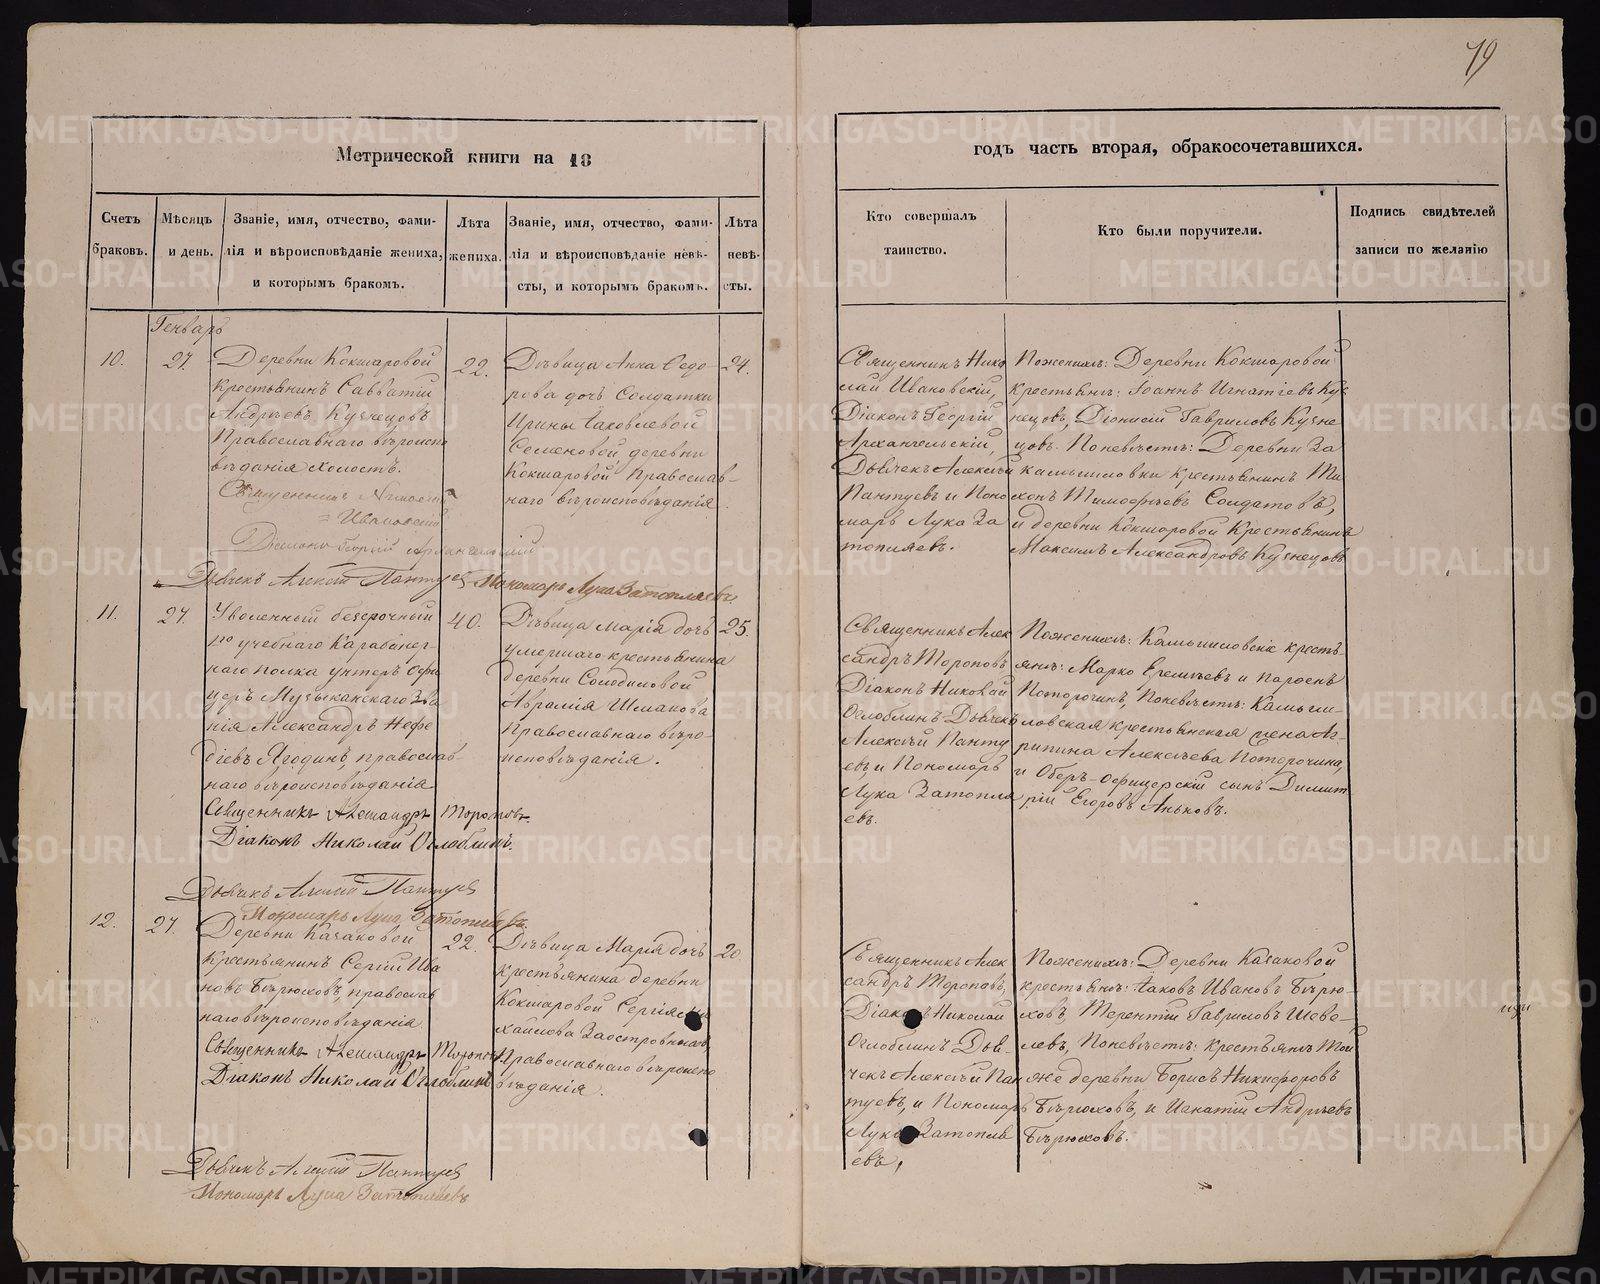 79
Метрической книги на 18
годъ часть вторая, обракосочетавшихся.
Счетъ браковъ.
Мѣсяцъ и день.
Званіе, имя, отчество, фами-
лія и вѣроисповѣданіе жениха,
и которымъ бракомъ.
Лѣта жениха.
Званіе, имя, отчество, фами-
лія и вѣроисповѣданіе невѣ-
сты, и которымъ бракомъ.
Лѣта невѣ-
сты.
Кто совершалъ
таинство.
Кто были поручители.
Подпись свидѣтелей
записи по желанію
Генварь
10.
27.
Деревни Кокшаровой
крестьянинъ Савватій
Андрѣевъ Кузнецовъ
Православнаго вѣроиспо
вѣданія холостъ.
Священникъ Николай
Ивановскій
Діаконъ Георгій Архангельскій
Дьячекъ Алексѣй Пантуевъ
Пономарь Лука Затопляевъ.
22.
Дѣвица Анна Ѳедо
рова дочь Солдатки
Ирины Іаковлевой
Семеновой, деревни
Кокшаровой Православ-
наго вѣроисповѣданія
24.
Священникъ Нико
лай Ивановскій,
Діаконъ Георгій
Архангельскій,
Дьячекъ Алексѣй
Пантуевъ и Поно
марь Лука За
топляевъ.
Поженихѣ: Деревни Кокшаровой
крестьяне: Іоаннъ Игнатіевъ Куз
нецовъ, Діонисій Гавриловъ Кузне
цовъ. Поневѣстѣ: Деревни За
камышловки крестьянинъ Ти
хонъ Тимофѣевъ Солдатовъ,
и деревни Кокшаровой Крестьянинъ
Максимъ Александровъ Кузнецовъ
11.
27.
Уволенный безсрочный
1го учебнаго Карабинер-
наго полка унтеръ Офи
церъ Музыканскаго Зва
нія Александръ Нефе
діевъ Ягодинъ, православ-
наго вѣроисповѣданія
Священникъ Александръ Тороповъ.
Діаконъ Николай Оглоблинъ.
Дьячекъ Алексѣй Пантуевъ
Пономарь Лука Затопляевъ.
40.
Дѣвица Марія дочь
умершаго крестьянина
деревни Солодиловой
Авраамія Шмакова
Православнаго вѣро-
исповѣданія.
25.
Священникъ Алек
сандръ Тороповъ
Діаконъ Николай
Оглоблинъ Дьячекъ
Алексѣй Панту
евъ, и Пономарь
Лука Затопля
евъ.
Поженихѣ: Камышловскіе кресть-
яне: Марко Еремѣевъ и Парѳенъ
Поторочинъ, Поневѣстѣ: Камыш-
ловская крестьянская жена Аг-
рипина Алексѣева Поторочина,
и Оберъ-Офицерскій сынъ Димит
рій Егоровъ Аньковъ.
12.
27.
Деревни Казаковой
крестьянинъ Сергій Ива
новъ Бѣрюковъ, православ
наго вѣроисповѣданія
Священникъ Александръ Тороповъ
Діаконъ Николай Оглоблинъ
Дьячекъ Алексѣй Пантуевъ
Пономарь Лука Затопляевъ
22.
Дѣвица Марія дочь
крестьянина деревни
Кокшаровой Сергія Ми
хайлова Заостровныхъ,
Православнаго вѣроиспо
вѣданія.
20
Священникъ Алек
сандръ Тороповъ,
Діаконъ Николай
Оглоблинъ Дья-
чекъ Алексѣй Пан
туевъ, и Пономарь
Лука Затопля
евъ,
Поженихѣ: Деревни Казаковой
крестьяне: Іаковъ Ивановъ Бѣрю-
ковъ, Терентій Гавриловъ Шеве-
левъ, Поневѣстѣ: крестьяне Той
яже деревни Борисъ Никифоровъ
Бѣрюковъ, и Игнатій Андрѣевъ
Бѣрюковъ.
METRIKI.GASO-URAL.RU